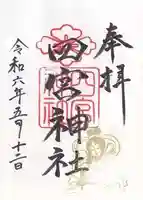 奉拝
四宮神社
令和六年五月十二日